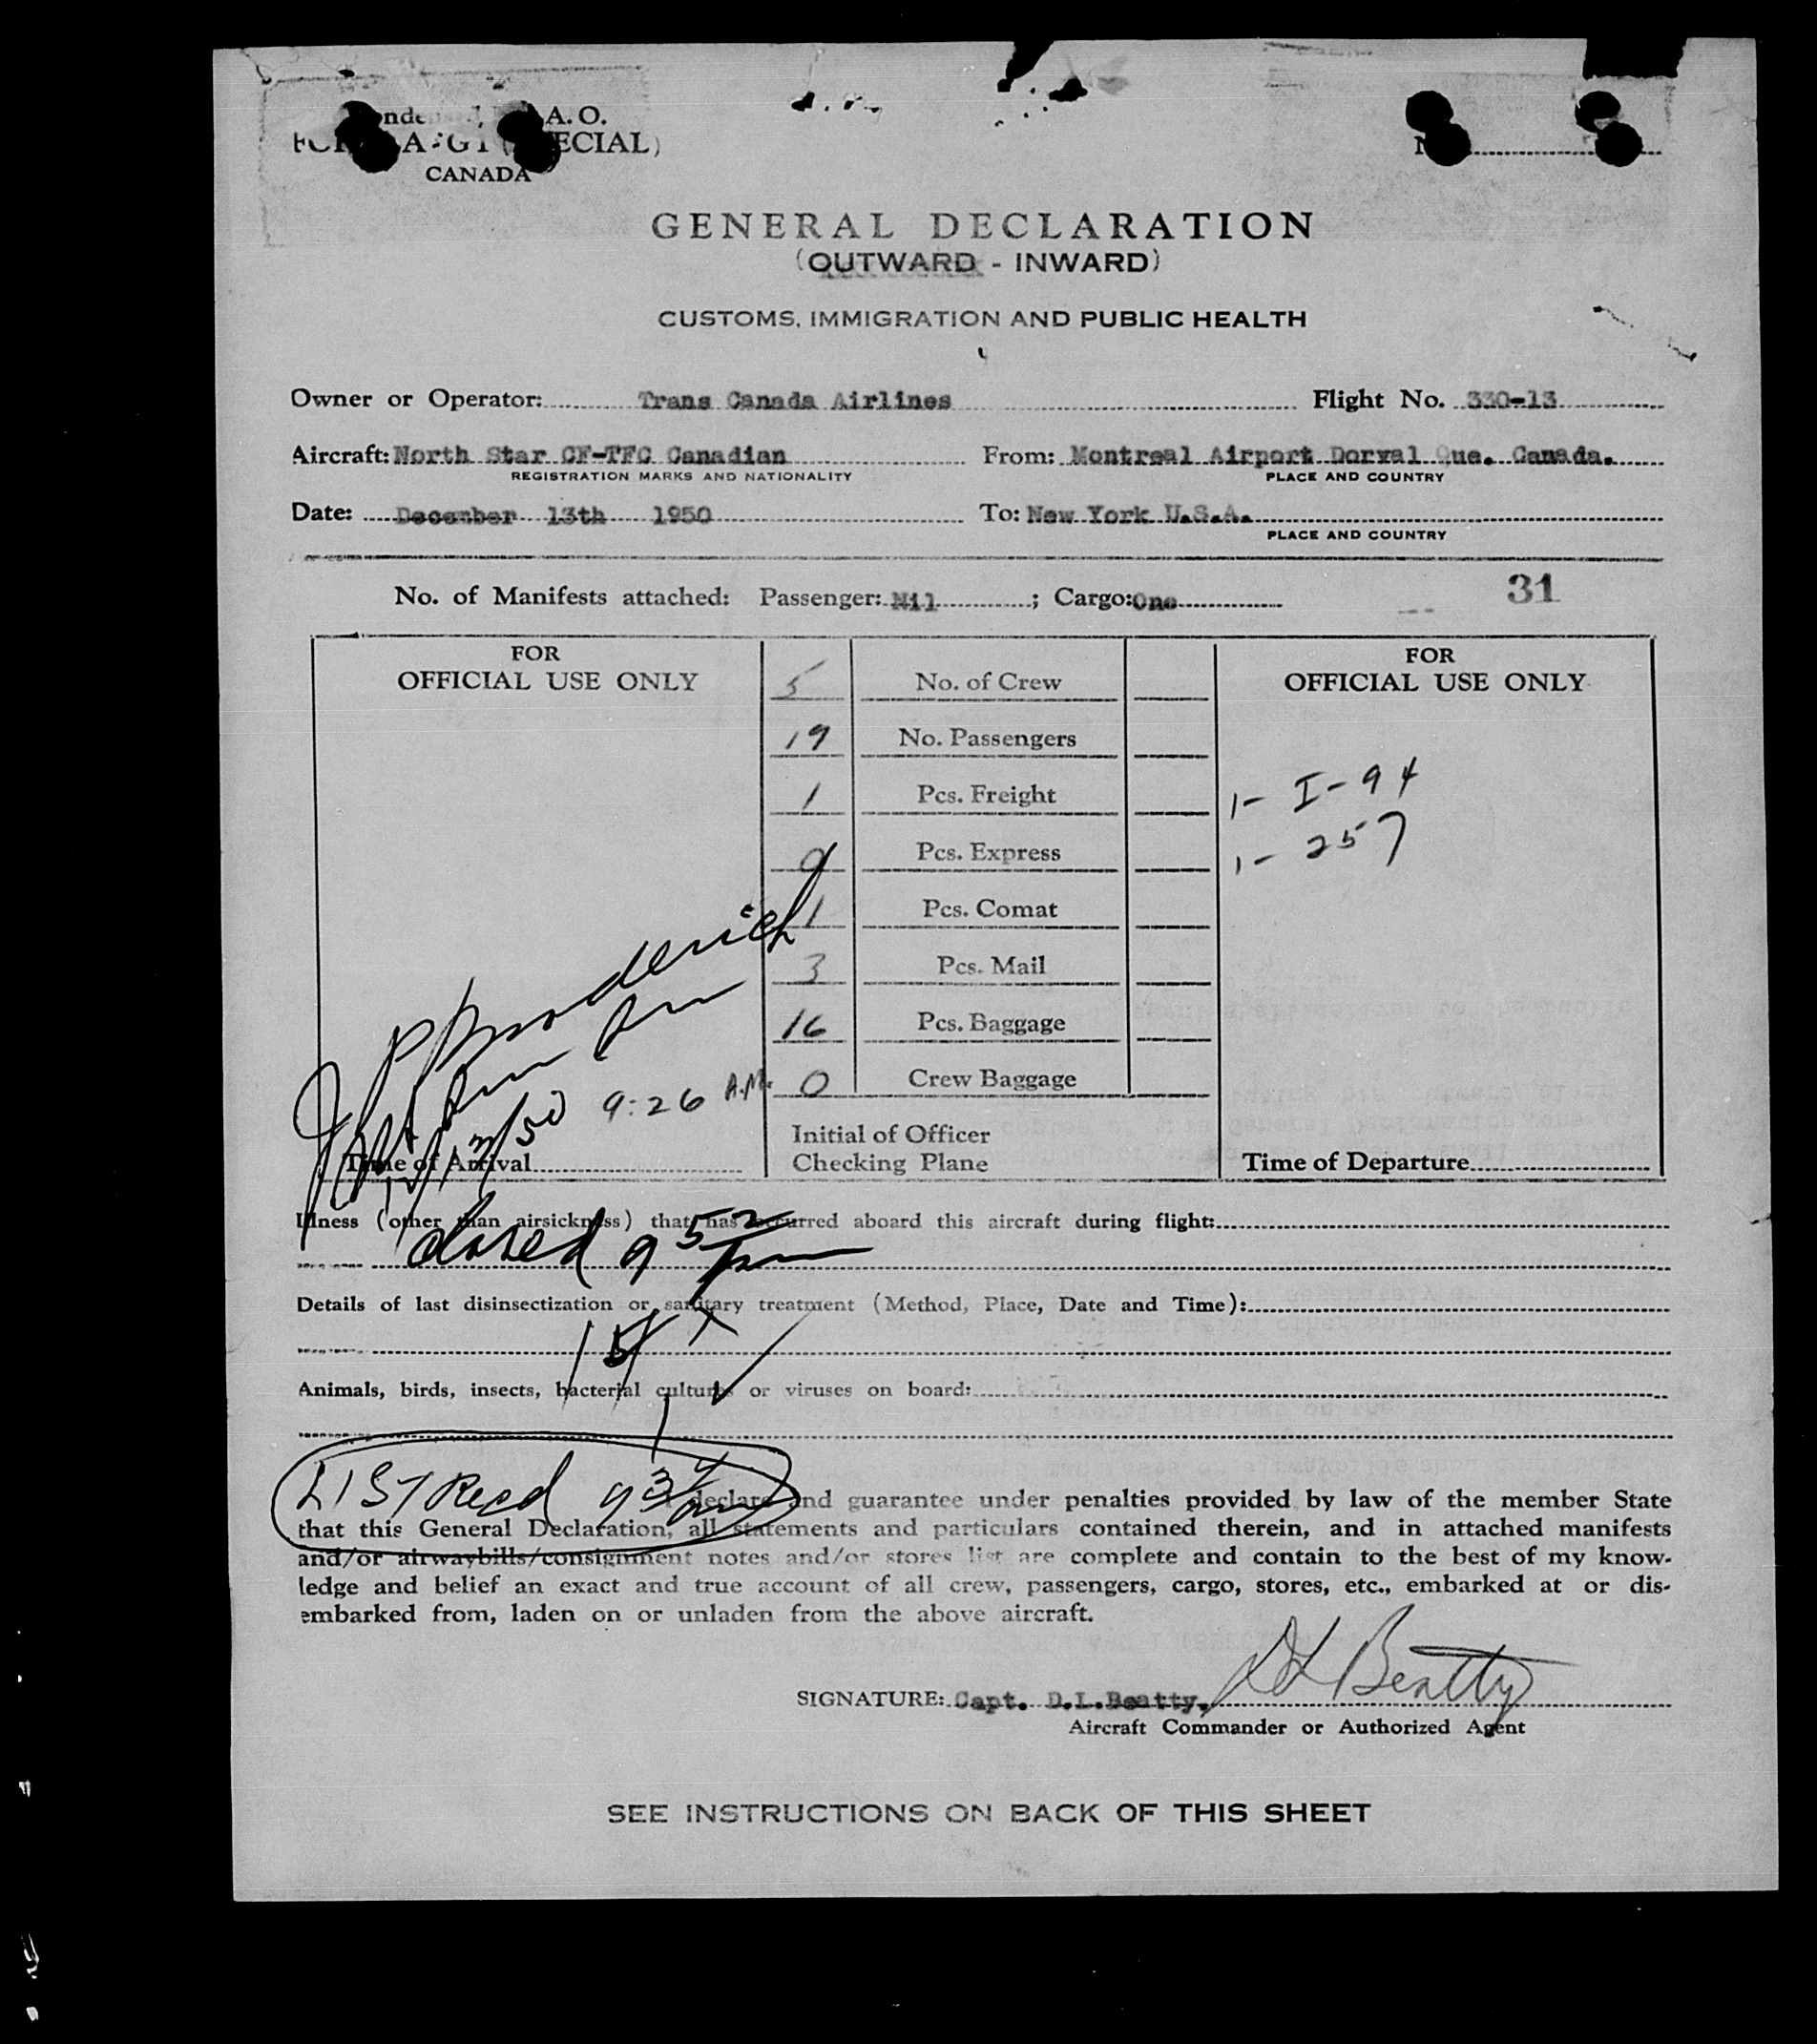 A. O.
ECIAL)
CANADA
GENERAL DECLARATION
(OUTWARD - INWARD)
CUSTOMS, IMMIGRATION AND PUBLIC HEALTH
Owner or Operator: Trans Canada Airlines Flight No. 330-13
Aircraft: North Star CF-TFC Canadian From: Montreal Airport Dorval Que. Canada.
REGISTRATION MARKS AND NATIONALITY PLACE AND COUNTRY
Date: December 13th 1950 To: New York U.S.A.
PLACE AND COUNTRY
No. of Manifests attached: Passenger: Nil ; Cargo: One 31
FOR OFFICIAL USE ONLY
5 No. of Crew
19 No. Passengers
1 Pcs. Freight
0 Pcs. Express
1 Pcs. Comat
3 Pcs. Mail
16 Pcs. Baggage
0 Crew Baggage
Initial of Officer
Checking Plane
FOR OFFICIAL USE ONLY
1- I-94
1- 257
J P Broderick
12/13/50 9:26 A.M.
Time of Arrival
Time of Departure
Illness (other than airsickness) that has occurred aboard this aircraft during flight:
closed 9 52
Details of last disinsectization or sanitary treatment (Method, Place, Date and Time):
Animals, birds, insects, bacterial cultures or viruses on board:
LIST Recd 9 34
I declare and guarantee under penalties provided by law of the member State
that this General Declaration, all statements and particulars contained therein, and in attached manifests
and/or airwaybills/consignment notes and/or stores list are complete and contain to the best of my know-
ledge and belief an exact and true account of all crew, passengers, cargo, stores, etc., embarked at or dis-
embarked from, laden on or unladen from the above aircraft.
SIGNATURE: Capt. D.L.Beatty. DL Beatty
Aircraft Commander or Authorized Agent
SEE INSTRUCTIONS ON BACK OF THIS SHEET